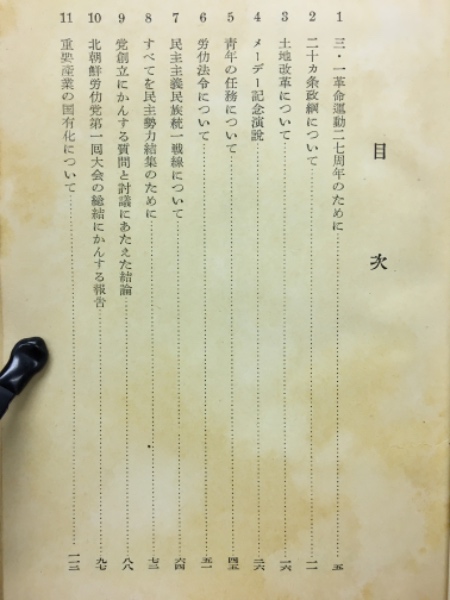 目次
1 三・一革命運動二七周年のために……五
2 二十ヵ条政綱について……一一
3 土地改革について……一六
4 メーデー記念演説……二六
5 青年の任務について……四五
6 労仂法令について……五一
7 民主主義民族統一戦線について……六四
8 すべてを民主勢力結集のために……七三
9 党創立にかんする質問と討議にあたえた結論……八八
10 北朝鮮労仂党第一回大会の総結にかんする報告……九七
11 重要産業の国有化について……一一三